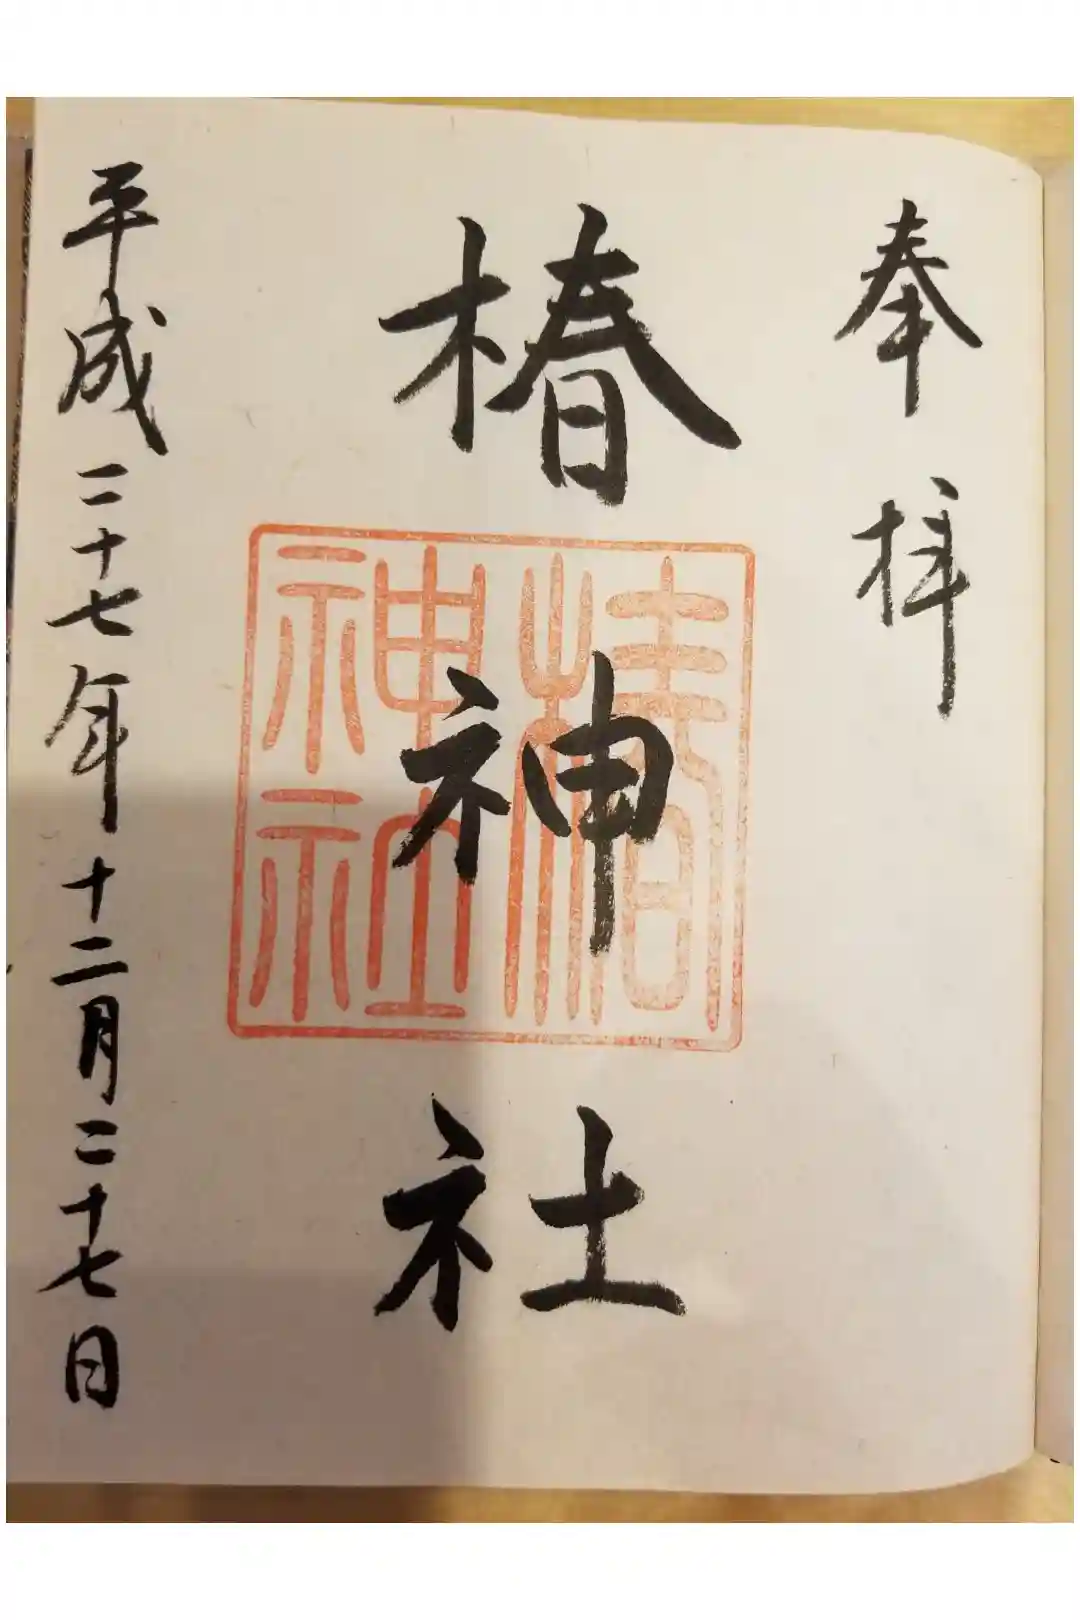 奉拝
椿神社
椿
神社
平成二十七年十二月二十七日